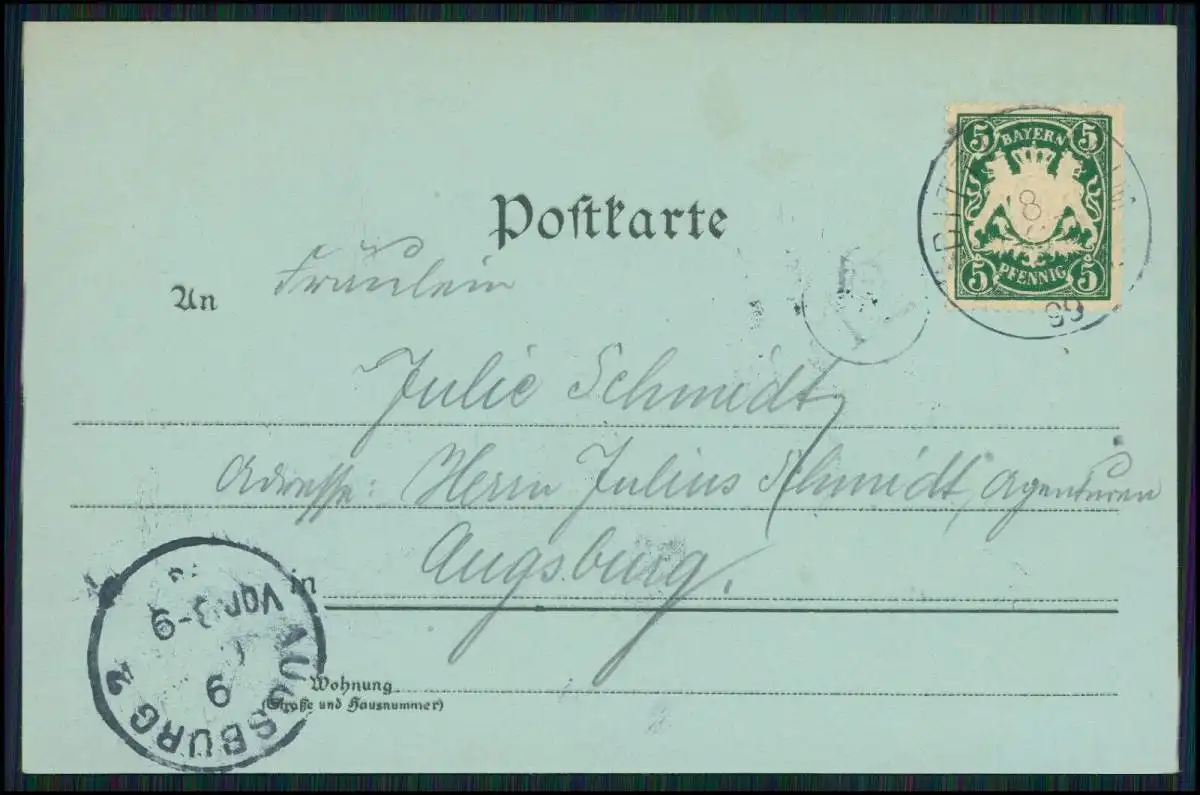 5 BAYERN 5
8
5 PFENNIG 5
99
Postkarte
An Fräulein
Julie Schmidt,
Adresse: Herrn Julius Schmidt, Agenturen
in Augsburg.
Wohnung
(Straße und Hausnummer)
AUGSBURG 2
9
Vor. 8-9